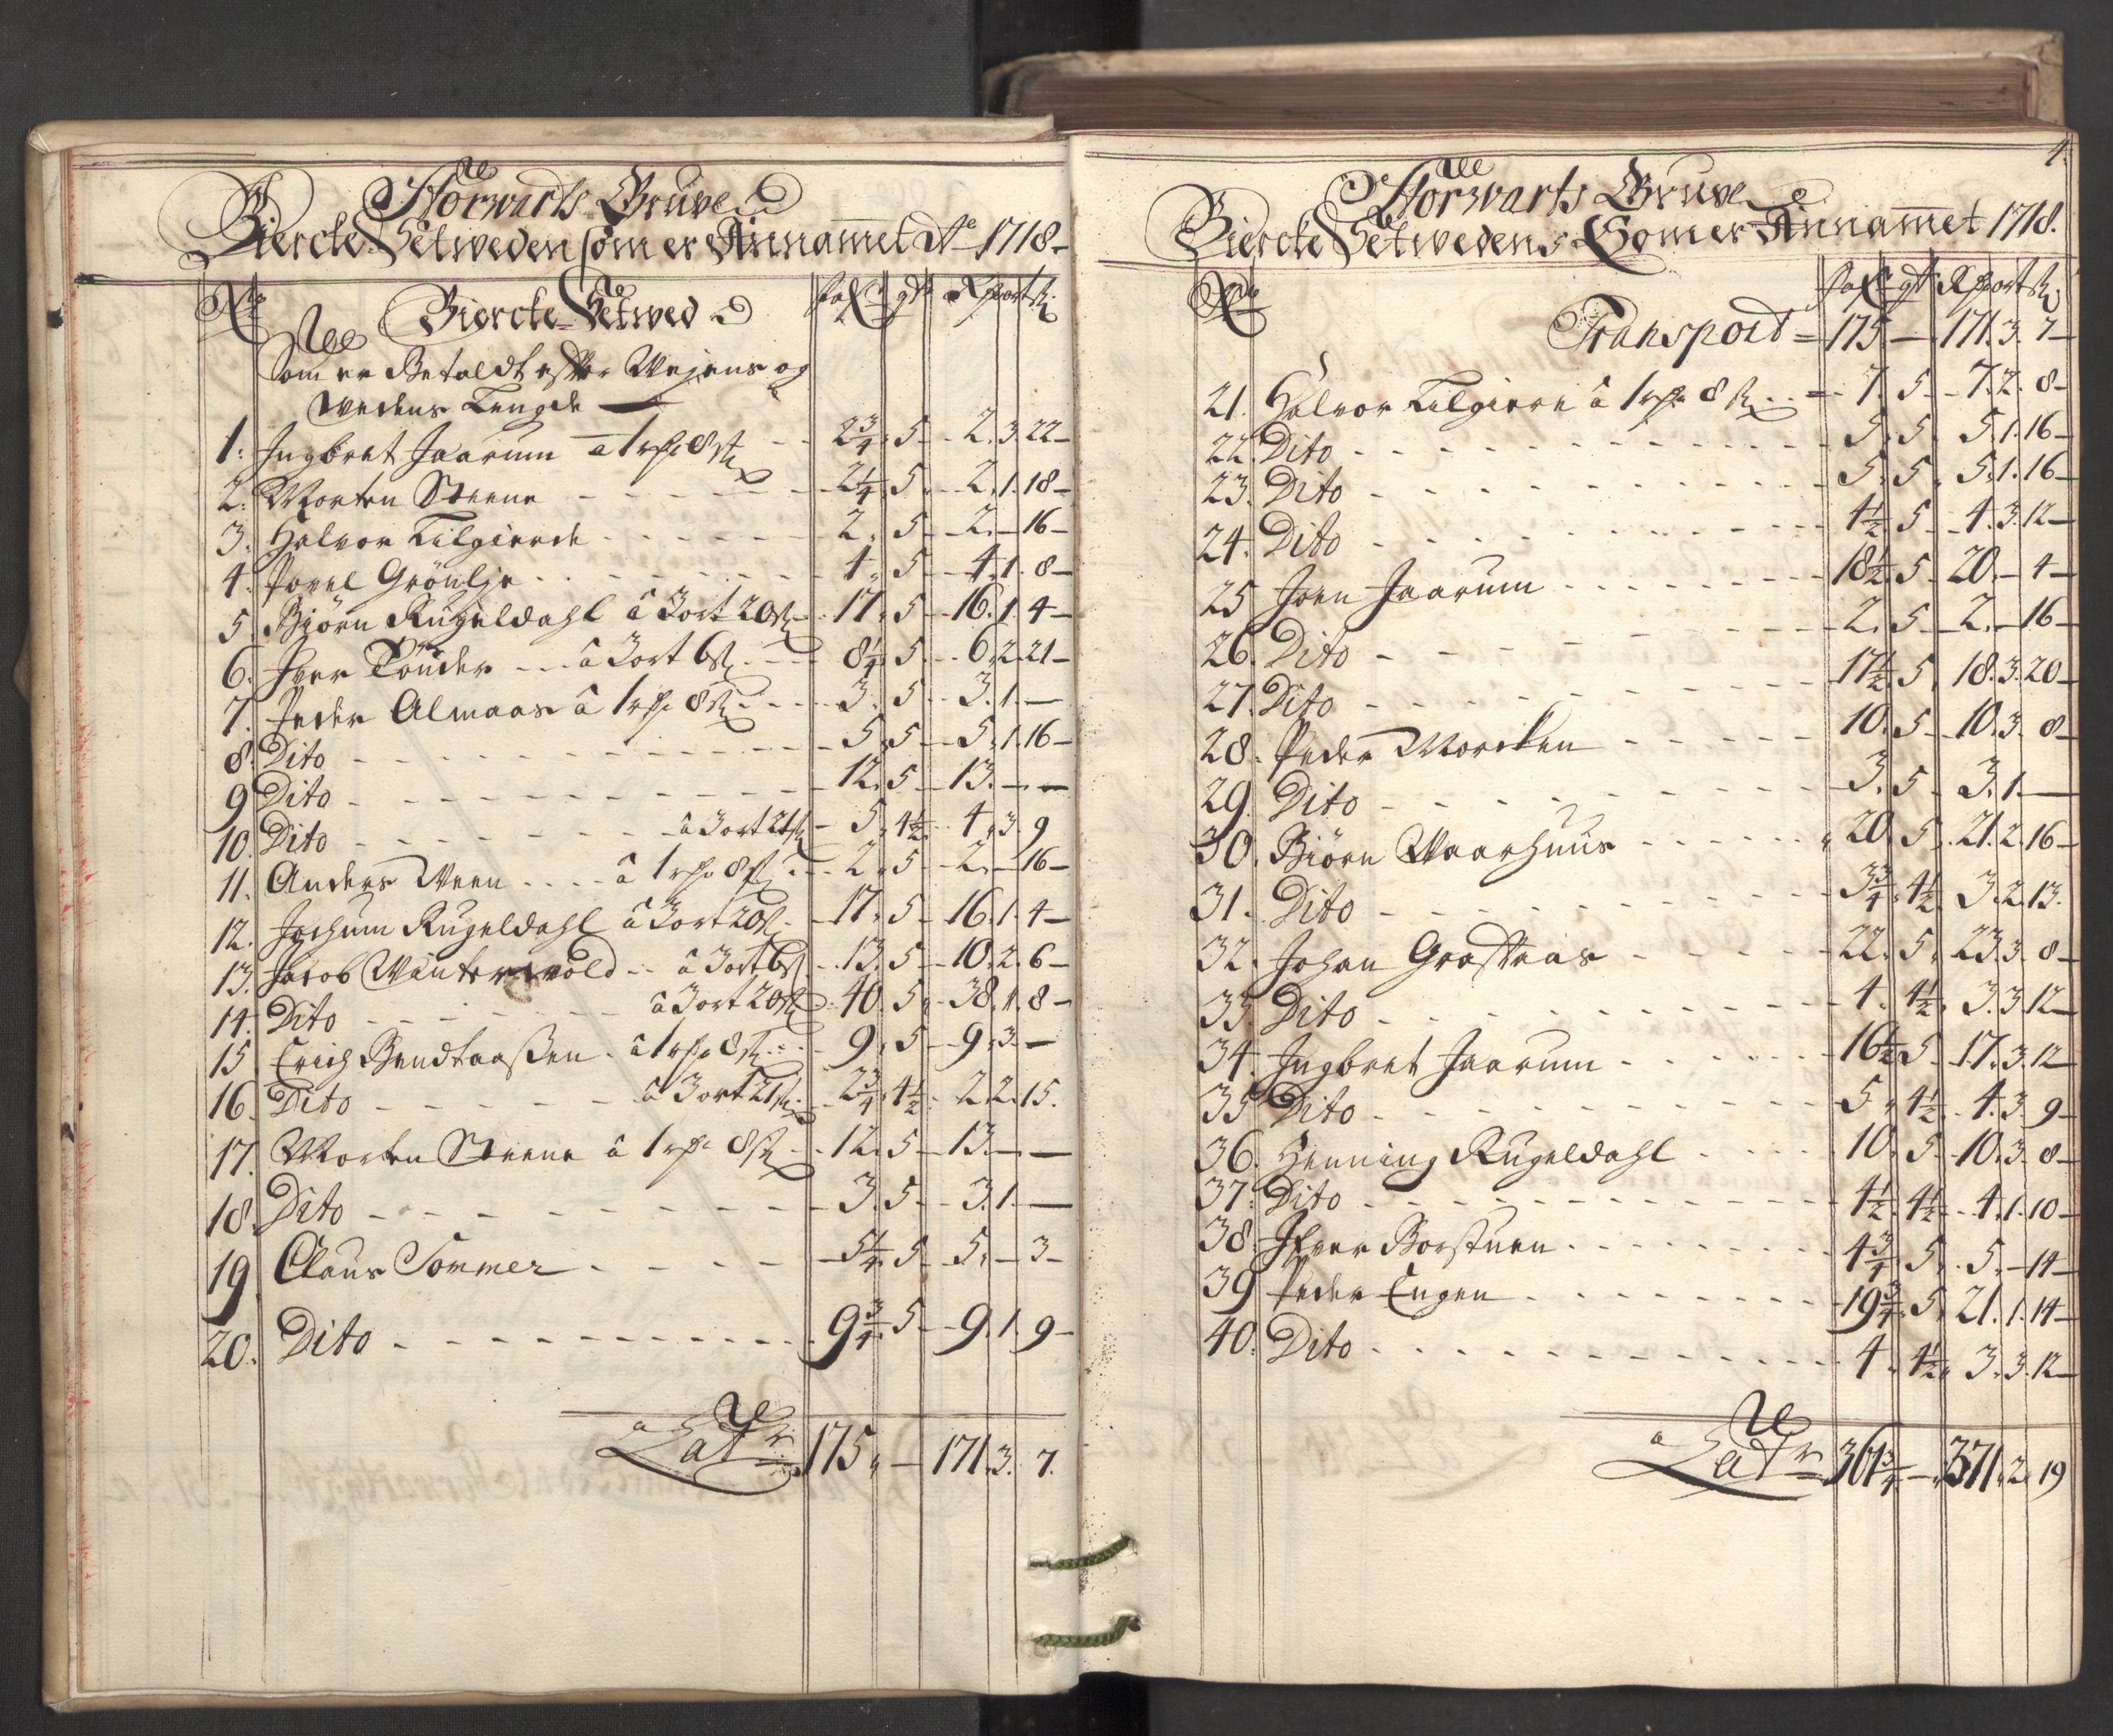 Storwarts Gruve
Biercke Setweden som er Annammet Ao 1718
No Biercke Setwed fafn qt Rdr ort s
Som er Betaldt efter Weyens og
Wedens Lengde
1. Ingbret Jaarum â 1 rdr 8 s 2 3/4 5 2. 3. 22
2. Morten Steene 2 1/4 5 2. 1. 18
3. Halvor Kilgierde 2. 5 2. — 16
4. Povel Grönlje 4 5 4. 1. 8
5. Biörn Rugeldahl â 3 ort 20 s 17. 5 16. 1. 4
6. Iver Tönder â 3 ort 6 s 8 1/4 5 6. 2. 21
7. Peder Almaas â 1 rdr 8 s 3. 5 3. 1. —
8. Dito 5. 5 5. 1. 16
9. Dito 12. 5 13. — —
10. Dito â 3 ort 21 s 5. 4 1/2 4. 3. 9
11. Anders Ween â 1 rdr 8 s 2. 5 2. — 16
12. Jochum Rugeldahl â 3 ort 20 s 17. 5 16. 1. 4
13. Jacob Wintervold â 3 ort 6 s 13. 5 10. 2. 6
14. Dito â 3 ort 20 s 40. 5 38. 1. 8
15. Erich Bendtaassen â 1 rdr 8 s 9. 5 9. 3. —
16. Dito â 3 ort 21 s 2 3/4 4 1/2 2. 2. 15.
17. Morten Steene â 1 rdr 8 s 12. 5 13. — —
18. Dito 3. 5 3. 1. —
19. Claus Sommer 5 1/4 5 5. — 3
20. Dito 9 3/4 5 9. 1. 9
Latr 175 — 171. 3. 7.
4.
Storwarts Gruve
Biercke Setweden Som er Annammet 1718.
No fafn qt Rdr ort s
Transport 175 — 171. 3. 7
21. Halvor Kilgiere â 1 rdr 8 s 7. 5 7. 2. 8
22. Dito 5. 5 5. 1. 16
23. Dito 5. 5 5. 1. 16
24. Dito 4 1/2 5 4. 3. 12
25. Joen Jaarum 18 1/2 5 20. — 4
26. Dito 2. 5 2. — 16
27. Dito 17 1/2 5 18. 3. 20
28. Peder Morcken 10. 5 10. 3. 8
29. Dito 3. 5 3. 1. —
30. Biörn Waarhuus 20. 5 21. 2. 16
31. Dito 3 3/4 4 1/2 3. 2. 13.
32. Johan Graftaas 22. 5 23. 3. 8
33. Dito 4. 4 1/2 3. 3. 12
34. Ingbret Jaarum 16 1/2 5 17. 3. 12
35. Dito 5. 4 1/2 4. 3. 9
36. Henning Rugeldahl 10. 5 10. 3. 8
37. Dito 4 1/2 4 1/2 4. 1. 10
38. Ifver Borstuen 4 3/4 5 5. — 14
39. Peder Engen 19 3/4 5 21. 1. 14
40. Dito 4. 4 1/2 3. 3. 12
Latr 361 3/4 — 371. 2. 19